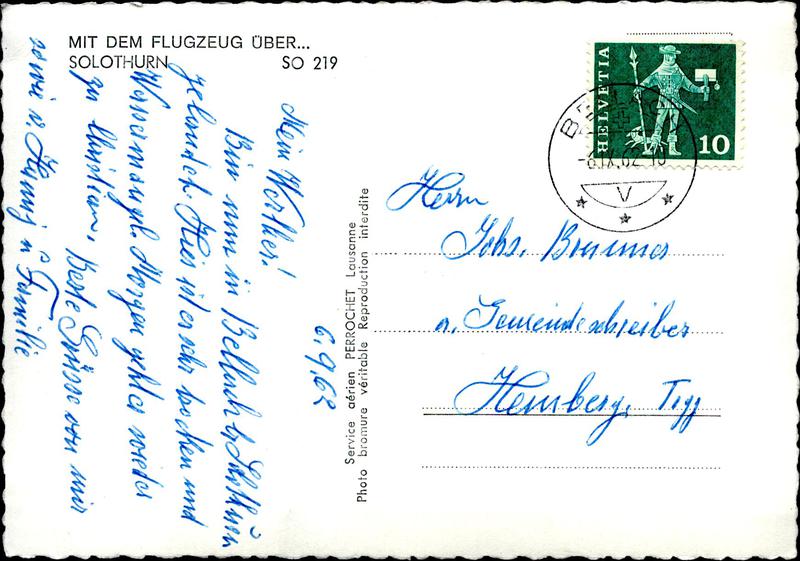 MIT DEM FLUGZEUG ÜBER...
SOLOTHURN SO 219
6.9.62
Mein Werther!
Bin nun in Bellach b/Solothurn
gelandet. Hier ist es sehr trocken und
Wassermangel. Morgen geht es wieder
zu Christian. Beste Grüsse von mir
sowie v. Hanny u Familie
Service aérien PERROCHET Lausanne
Photo bromure véritable Reproduction interdite
HELVETIA
10
BELLACH
-6.IX.62-10
V
Herrn
Johs. Brunner
a. Gemeindeschreiber
Hemberg, Togg